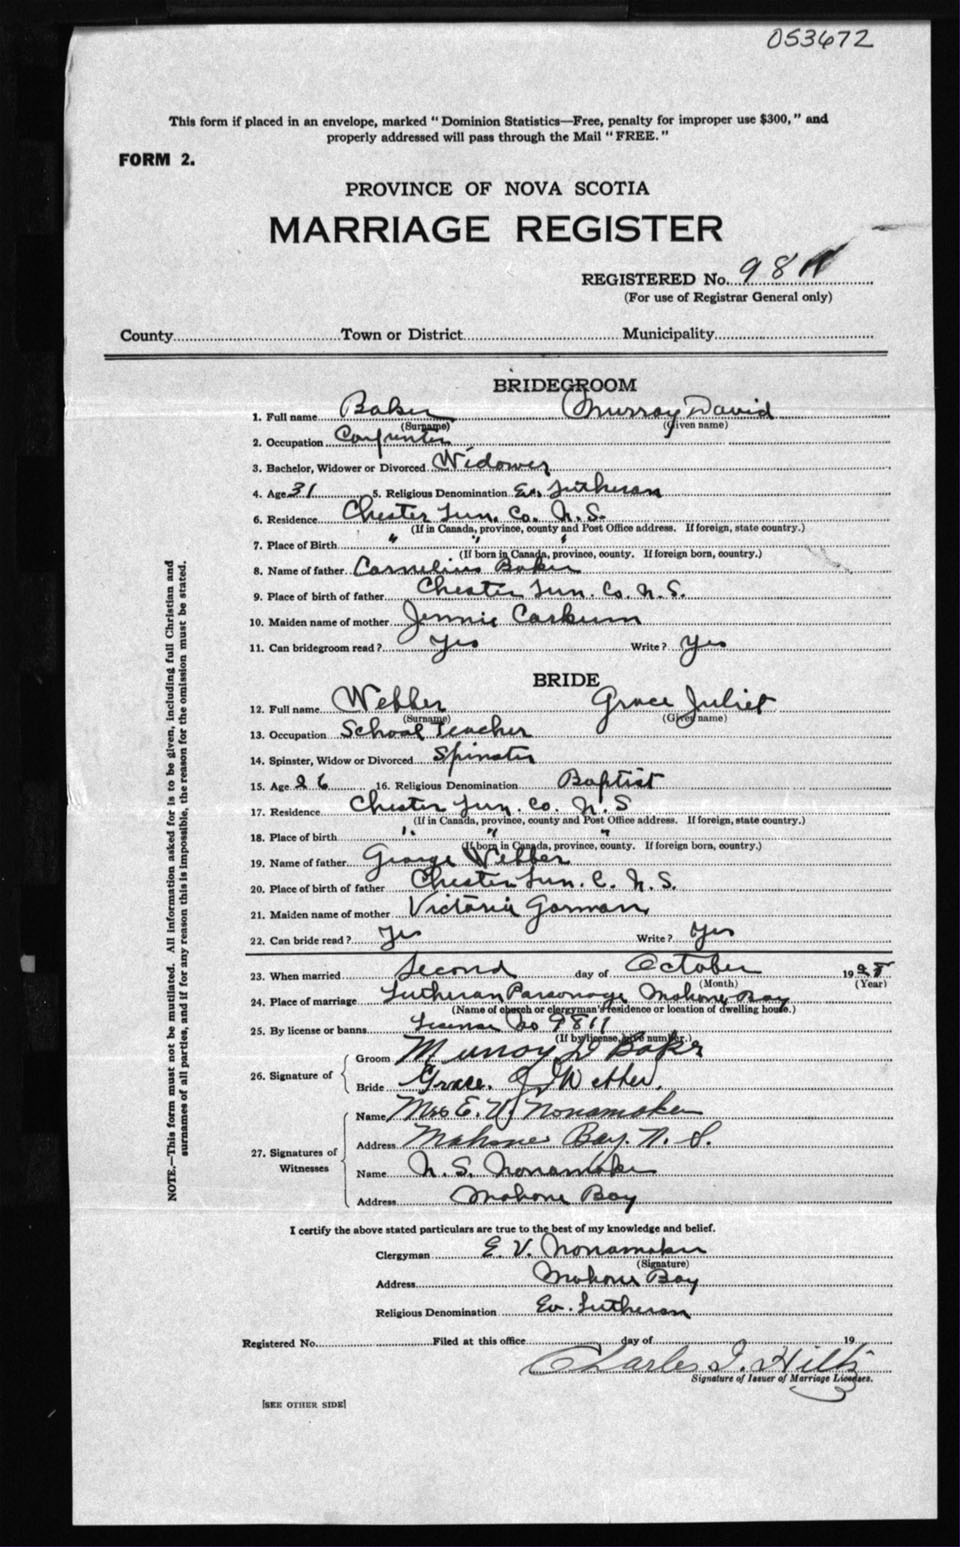 053672
This form if placed in an envelope, marked "Dominion Statistics—Free, penalty for improper use $300," and
properly addressed will pass through the Mail "FREE."
FORM 2.
PROVINCE OF NOVA SCOTIA
MARRIAGE REGISTER
REGISTERED No. 98
(For use of Registrar General only)
County Town or District Municipality
BRIDEGROOM
1. Full name Baker Murray David
(Surname) (Given name)
2. Occupation Carpenter
3. Bachelor, Widower or Divorced Widower
4. Age 31 5. Religious Denomination Ev. Lutheran
6. Residence Chester Lun. Co. N.S.
(If in Canada, province, county and Post Office address. If foreign, state country.)
7. Place of Birth " " "
(If born in Canada, province, county. If foreign born, country.)
8. Name of father Cornelius Baker
9. Place of birth of father Chester Lun. Co. N.S.
10. Maiden name of mother Jennie Corkum
11. Can bridegroom read? Yes Write? Yes
BRIDE
12. Full name Webber Grace Juliet
(Surname) (Given name)
13. Occupation School Teacher
14. Spinster, Widow or Divorced Spinster
15. Age 26 16. Religious Denomination Baptist
17. Residence Chester Lun. Co. N.S
(If in Canada, province, county and Post Office address. If foreign, state country.)
18. Place of birth " " "
(If born in Canada, province, county. If foreign born, country.)
19. Name of father George Webber
20. Place of birth of father Chester Lun. C. N.S.
21. Maiden name of mother Victoria Gorman
22. Can bride read? Yes Write? Yes
23. When married Second day of October 1928
(Month) (Year)
24. Place of marriage Lutheran Parsonage Mahone Bay
(Name of church or clergyman's residence or location of dwelling house.)
25. By license or banns License No 9811
(If by license, give number.)
26. Signature of Groom Murray D Baker
Bride Grace. J. Webber.
27. Signatures of Witnesses
Name Mrs E. V. Nonamaker
Address Mahone Bay. N. S.
Name N. S. Nonamaker
Address Mahone Bay
I certify the above stated particulars are true to the best of my knowledge and belief.
Clergyman E. V. Nonamaker
(Signature)
Address Mahone Bay
Religious Denomination Ev. Lutheran
Registered No. Filed at this office day of 19
Charles I. Hiltz
Signature of Issuer of Marriage Licenses.
[SEE OTHER SIDE]
NOTE.—This form must not be mutilated. All information asked for is to be given, including full Christian and
surnames of all parties, and if for any reason this is impossible, the reason for the omission must be stated.